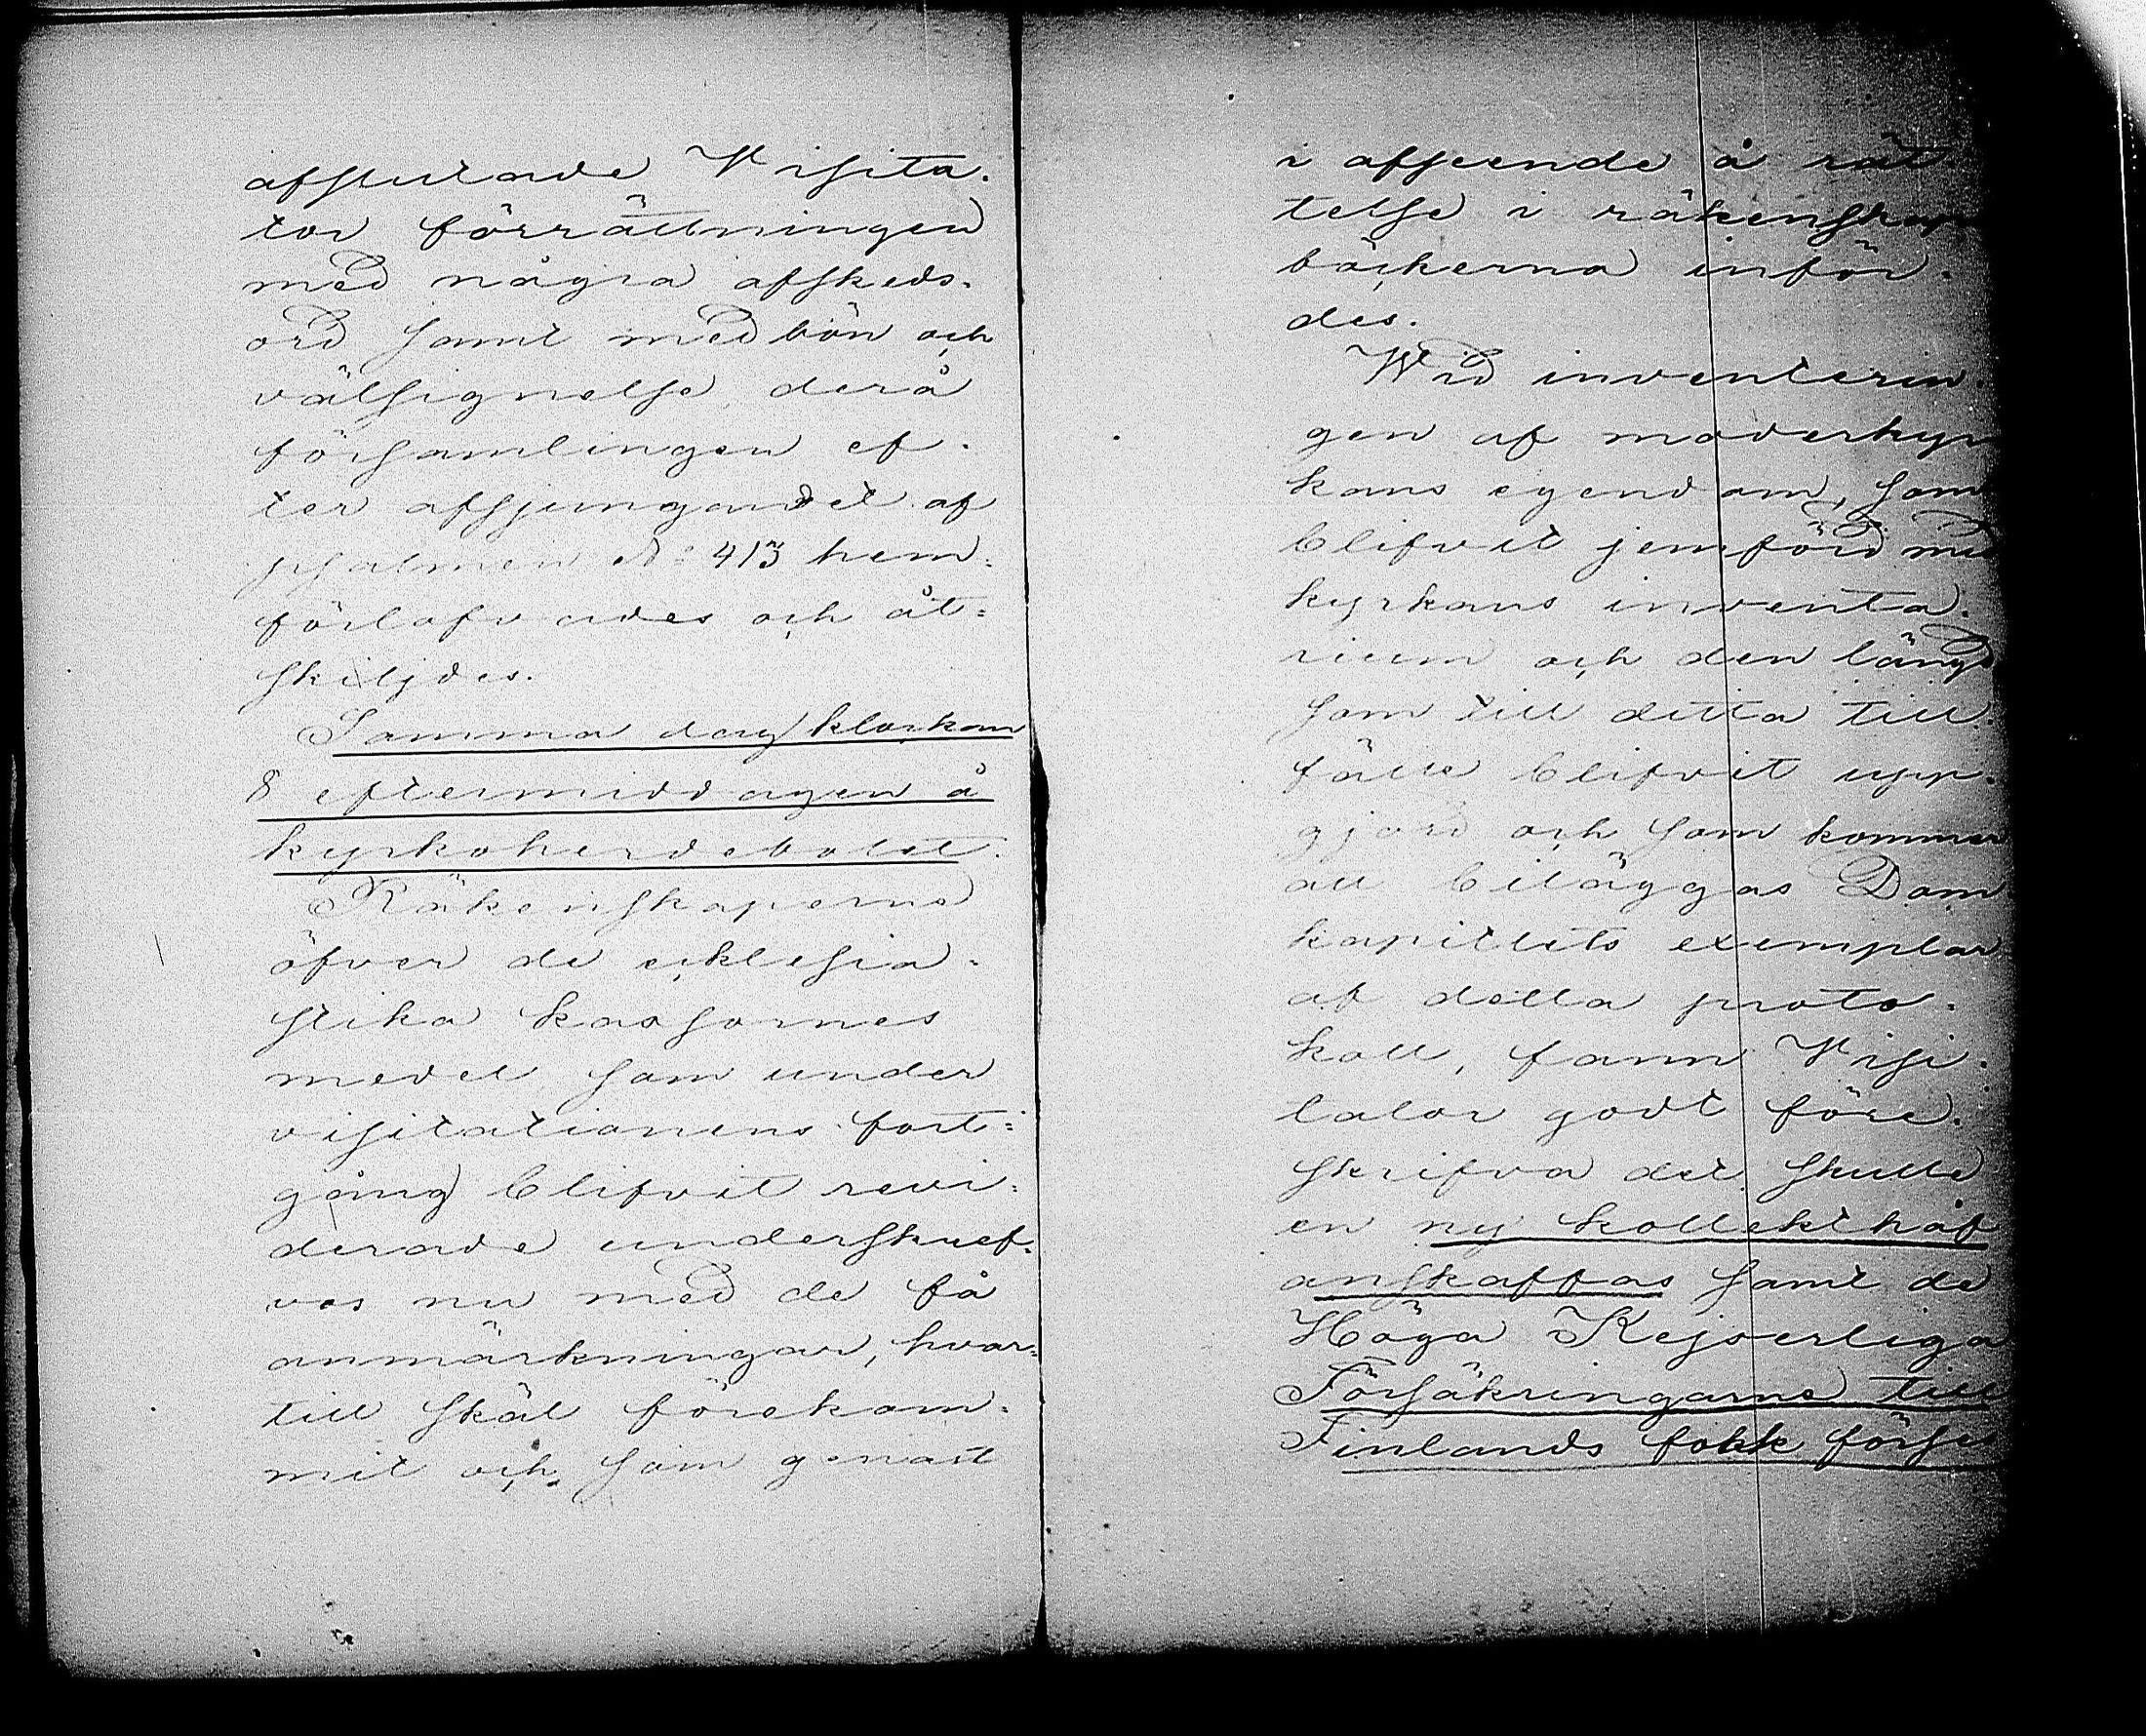 afslutade Visita-
tor förrättningen
med några afskeds-
ord samt med bön och
välsignelse derå
församlingen ef-
ter afsjungandet af
psalmen No 413 hem=
förlofvades och åt=
skiljdes.
Samma dag klockan
8 eftermiddagen å
kyrkoherdebolet.
Räkenskaperna
öfver de ecklesia-
stika kassornes
medel som under
visitationens fort=
gång blifvit revi=
derade underskref-
vos nu med de få
anmärkningar, hvar=
till skäl förekom-
mit och som genast
i afseende å rät
telse i räkenskaps
böckerna inför-
des.
Wid inventerin-
gen af moderkyr
kans egendom, som
blifvit jemförd med
kyrkans inventa-
rium och den längd
som till detta till-
fälle blifvit upp-
gjord och som kommer
att biläggas Dom
kapitlets exemplar
af detta proto-
koll, fann Visi-
tator godt före-
skrifva det skulle
en ny kollekthåf
anskaffas samt de
Höga Kejserliga
Försäkringarna till
Finlands folk förses